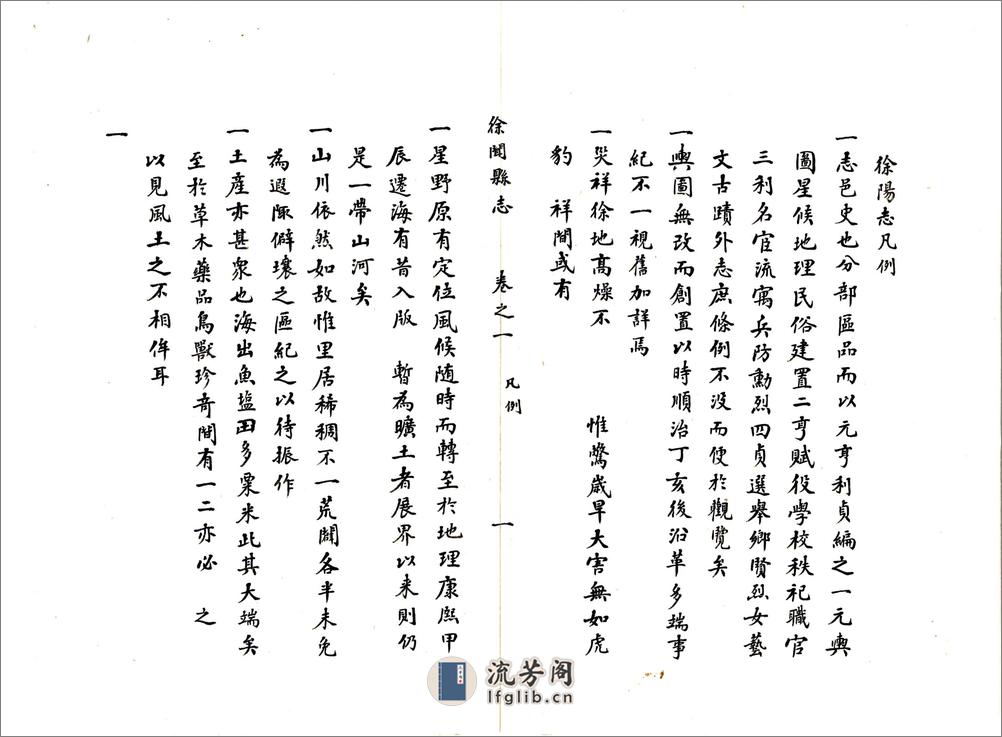 徐陽志凡例
一志邑史也分部區品而以元亨利貞編之一元輿
圖星候地理民俗建置二亨賦役學校秩祀職官
三利名宦流寓兵防勳烈四貞選舉鄉賢烈女藝
文古蹟外志庶條例不没而便於觀覽矣
一輿圖無改而創置以時順治丁亥後沿革多端事
紀不一視舊加詳焉
一災祥徐地高燥不 惟驚歲旱大害無如虎
豹 祥間或有
徐聞縣志 卷之一 凡例 一
一星野原有定位風候随時而轉至於地理康熙甲
辰遷海有昔入版 暫為曠土者展界以来則仍
是一帶山河矣
一山川依然如故惟里居稀稠不一荒闢各半未免
為遐陬僻壤之區紀之以待振作
一土産亦甚衆也海出魚塩田多粟米此其大端矣
至於草木藥品鳥獸珍奇間有一二亦必 之
以見風土之不相侔耳
一
流芳阁
lfglib.cn